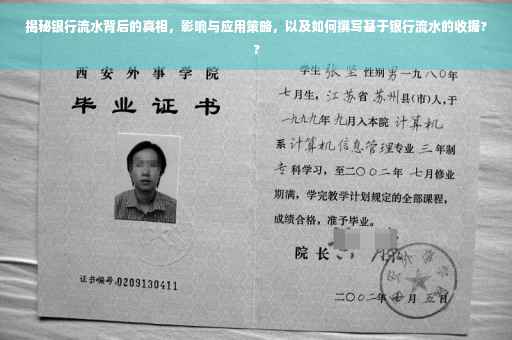 揭秘银行流水背后的真相，影响与应用策略，以及如何撰写基于银行流水的收据？
？
西安外事学院
毕业证书
证书编号:0209130411
学生张坚性别男一九八〇年
七月生，江苏省苏州县(市)人，于
一九九九年九月入本院计算机
系计算机信息管理专业三年制
专科学习，至二〇〇二年七月修业
期满，学完教学计划规定的全部课程，
成绩合格，准予毕业。
院长
二〇〇二年 月五日